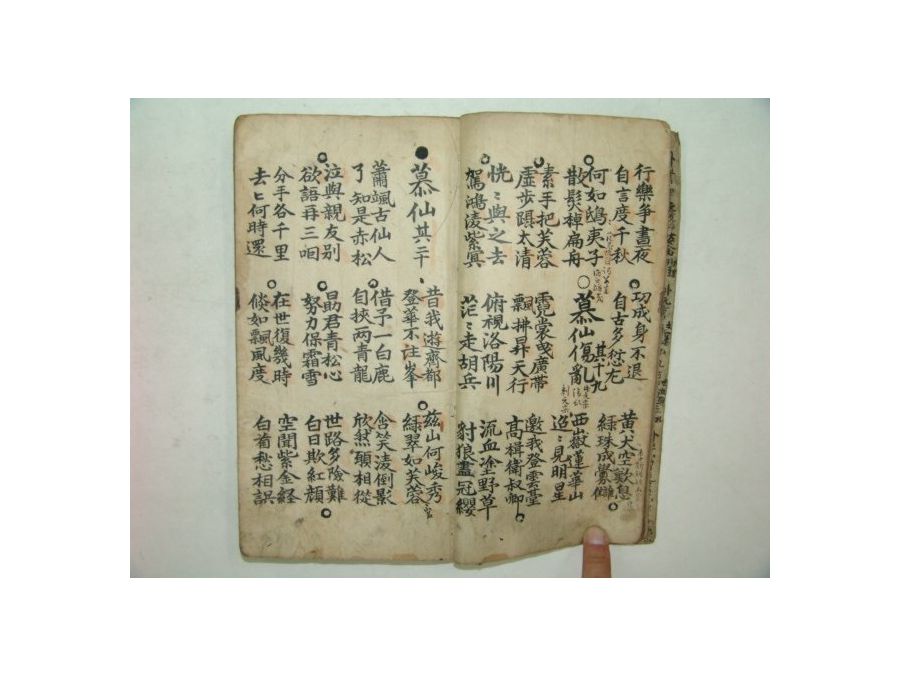 行樂爭晝夜
自言度千秋
功成身不退
自古多愆尤
黃犬空歎息
綠珠成釁讎
何如鴟夷子
散髮棹扁舟
慕仙傷亂 其十九
西嶽蓮華山
迢〻見明星
素手把芙蓉
虛步躡太清
霓裳曳廣帶
飄拂昇天行
邀我登雲臺
高揖衛叔卿
恍〻與之去
駕鴻凌紫冥
俯視洛陽川
茫〻走胡兵
流血塗野草
豺狼盡冠纓
慕仙其二十
昔我遊齊都
登華不注峯
茲山何峻秀
綠翠如芙蓉
蕭颯古仙人
了知是赤松
借予一白鹿
自挾兩青龍
含笑凌倒景
欣然願相從
泣與親友別
欲語再三咽
勗君青松心
努力保霜雪
世路多險難
白日欺紅顔
分手各千里
去〻何時還
在世復幾時
倏如飄風度
空聞紫金經
白首愁相誤